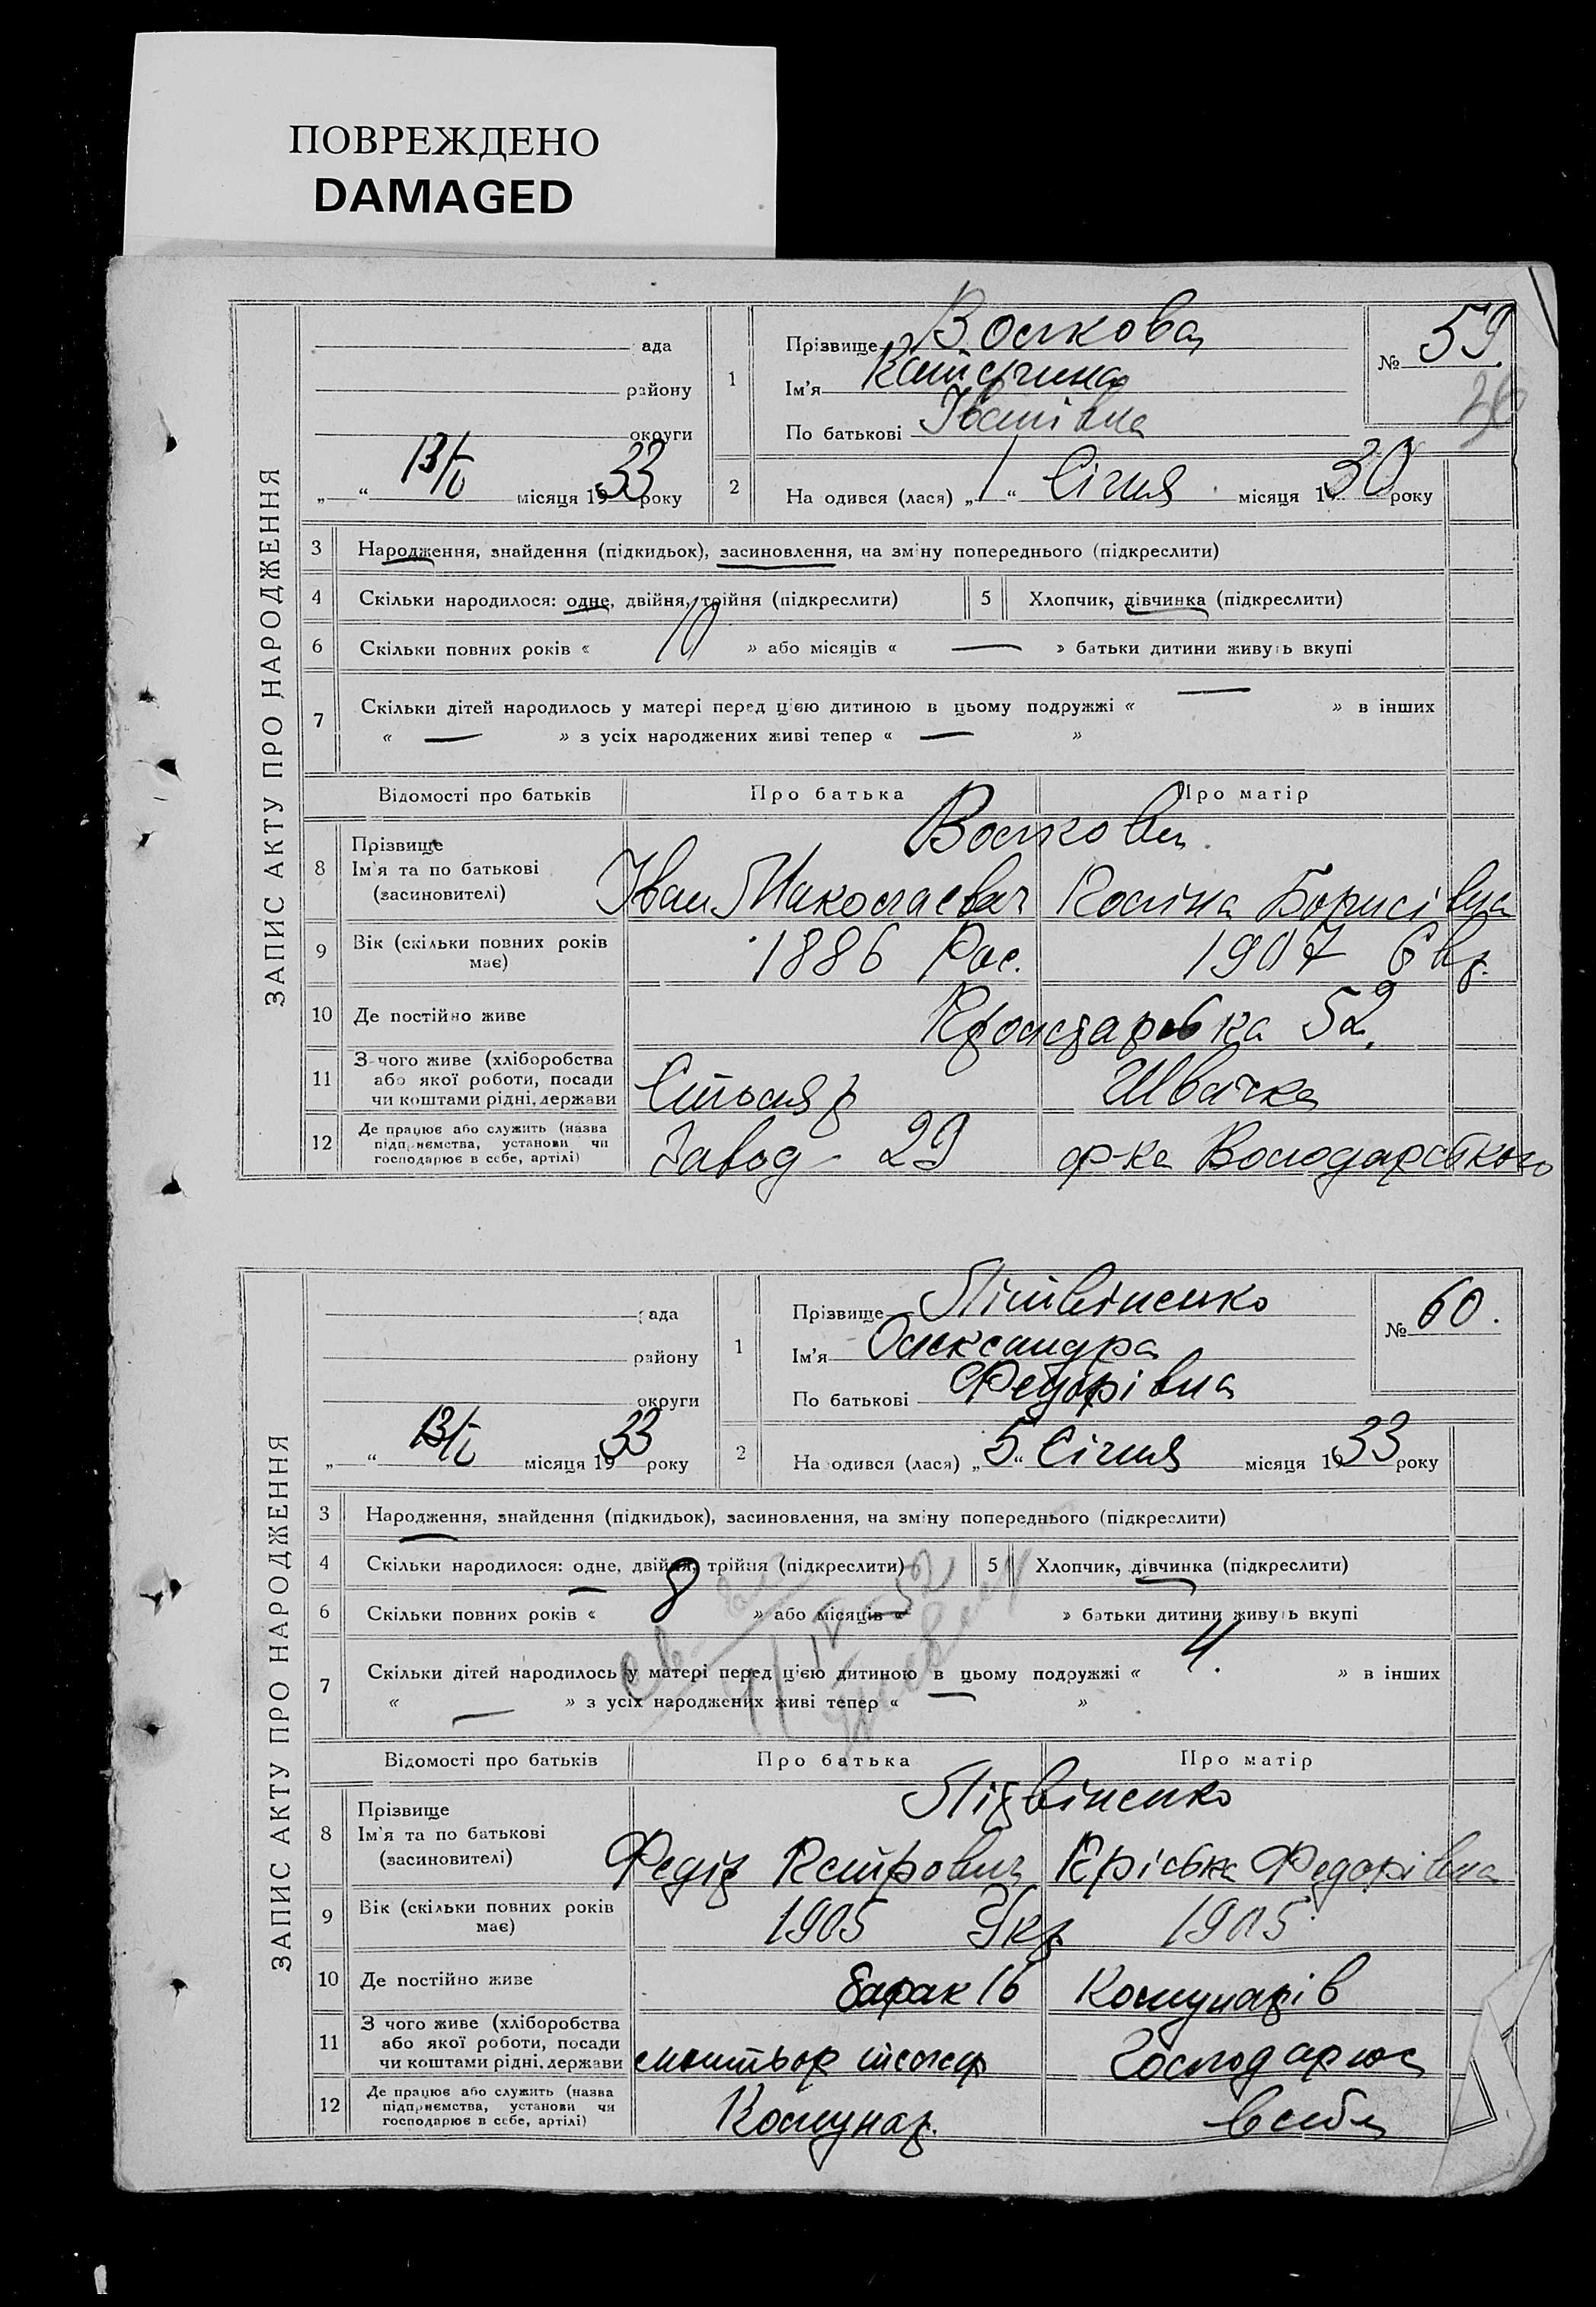 ПОВРЕЖДЕНО
DAMAGED
ЗАПИС АКТУ ПРО НАРОДЖЕННЯ
рада
району
округи
„ “ 13/I місяця 1933 року
1 Прізвище Волкова
Ім'я Катерина
По батькові Іванівна
№ 59.
2 На одився (лася) „1“ Січня місяця 1930 року
3 Народження, знайдення (підкидьок), засиновлення, на зміну попереднього (підкреслити)
4 Скільки народилося: одне, двійня, трійня (підкреслити)
5 Хлопчик, дівчинка (підкреслити)
6 Скільки повних років « 10 » або місяців « — » батьки дитини живуть вкупі
7 Скільки дітей народилось у матері перед цією дитиною в цьому подружжі « — » в інших
« — » з усіх народжених живі тепер « — »
Відомості про батьків Про батька Про матір
8 Прізвище
Ім'я та по батькові
(засиновителі)
Волкови
Іван Миколаєвич Поліна Борисівна
9 Вік (скільки повних років має) 1886 Рос. 1907 Євр.
10 Де постійно живе 52.
11 З чого живе (хліборобства
або якої роботи, посади
чи коштами рідні, держави
Стьоляр Швачка
12 Де працює або служить (назва
підприємства, установи чи
господарює в себе, артілі)
Завод - 29 ф-ка Володарського
ЗАПИС АКТУ ПРО НАРОДЖЕННЯ
рада
району
округи
„ “ 13/I місяця 1933 року
1 Прізвище Літвіненко
Ім'я Олександра
По батькові Федорівна
№ 60.
2 На одився (лася) „5“ Січня місяця 1933 року
3 Народження, знайдення (підкидьок), засиновлення, на зміну попереднього (підкреслити)
4 Скільки народилося: одне, двійня, трійня (підкреслити)
5 Хлопчик, дівчинка (підкреслити)
6 Скільки повних років « 8 » або місяців « » батьки дитини живуть вкупі
7 Скільки дітей народилось у матері перед цією дитиною в цьому подружжі « » в інших
« — » з усіх народжених живі тепер « — »
Відомості про батьків Про батька Про матір
8 Прізвище
Ім'я та по батькові
(засиновителі)
Літвіненко
Федір Петрович Федорівна
9 Вік (скільки повних років має) 1905 Укр. 1905
10 Де постійно живе барак 16 Комунарів
11 З чого живе (хліборобства
або якої роботи, посади
чи коштами рідні, держави
монтьор Господарює
12 Де працює або служить (назва
підприємства, установи чи
господарює в себе, артілі)
Комунар. в себе